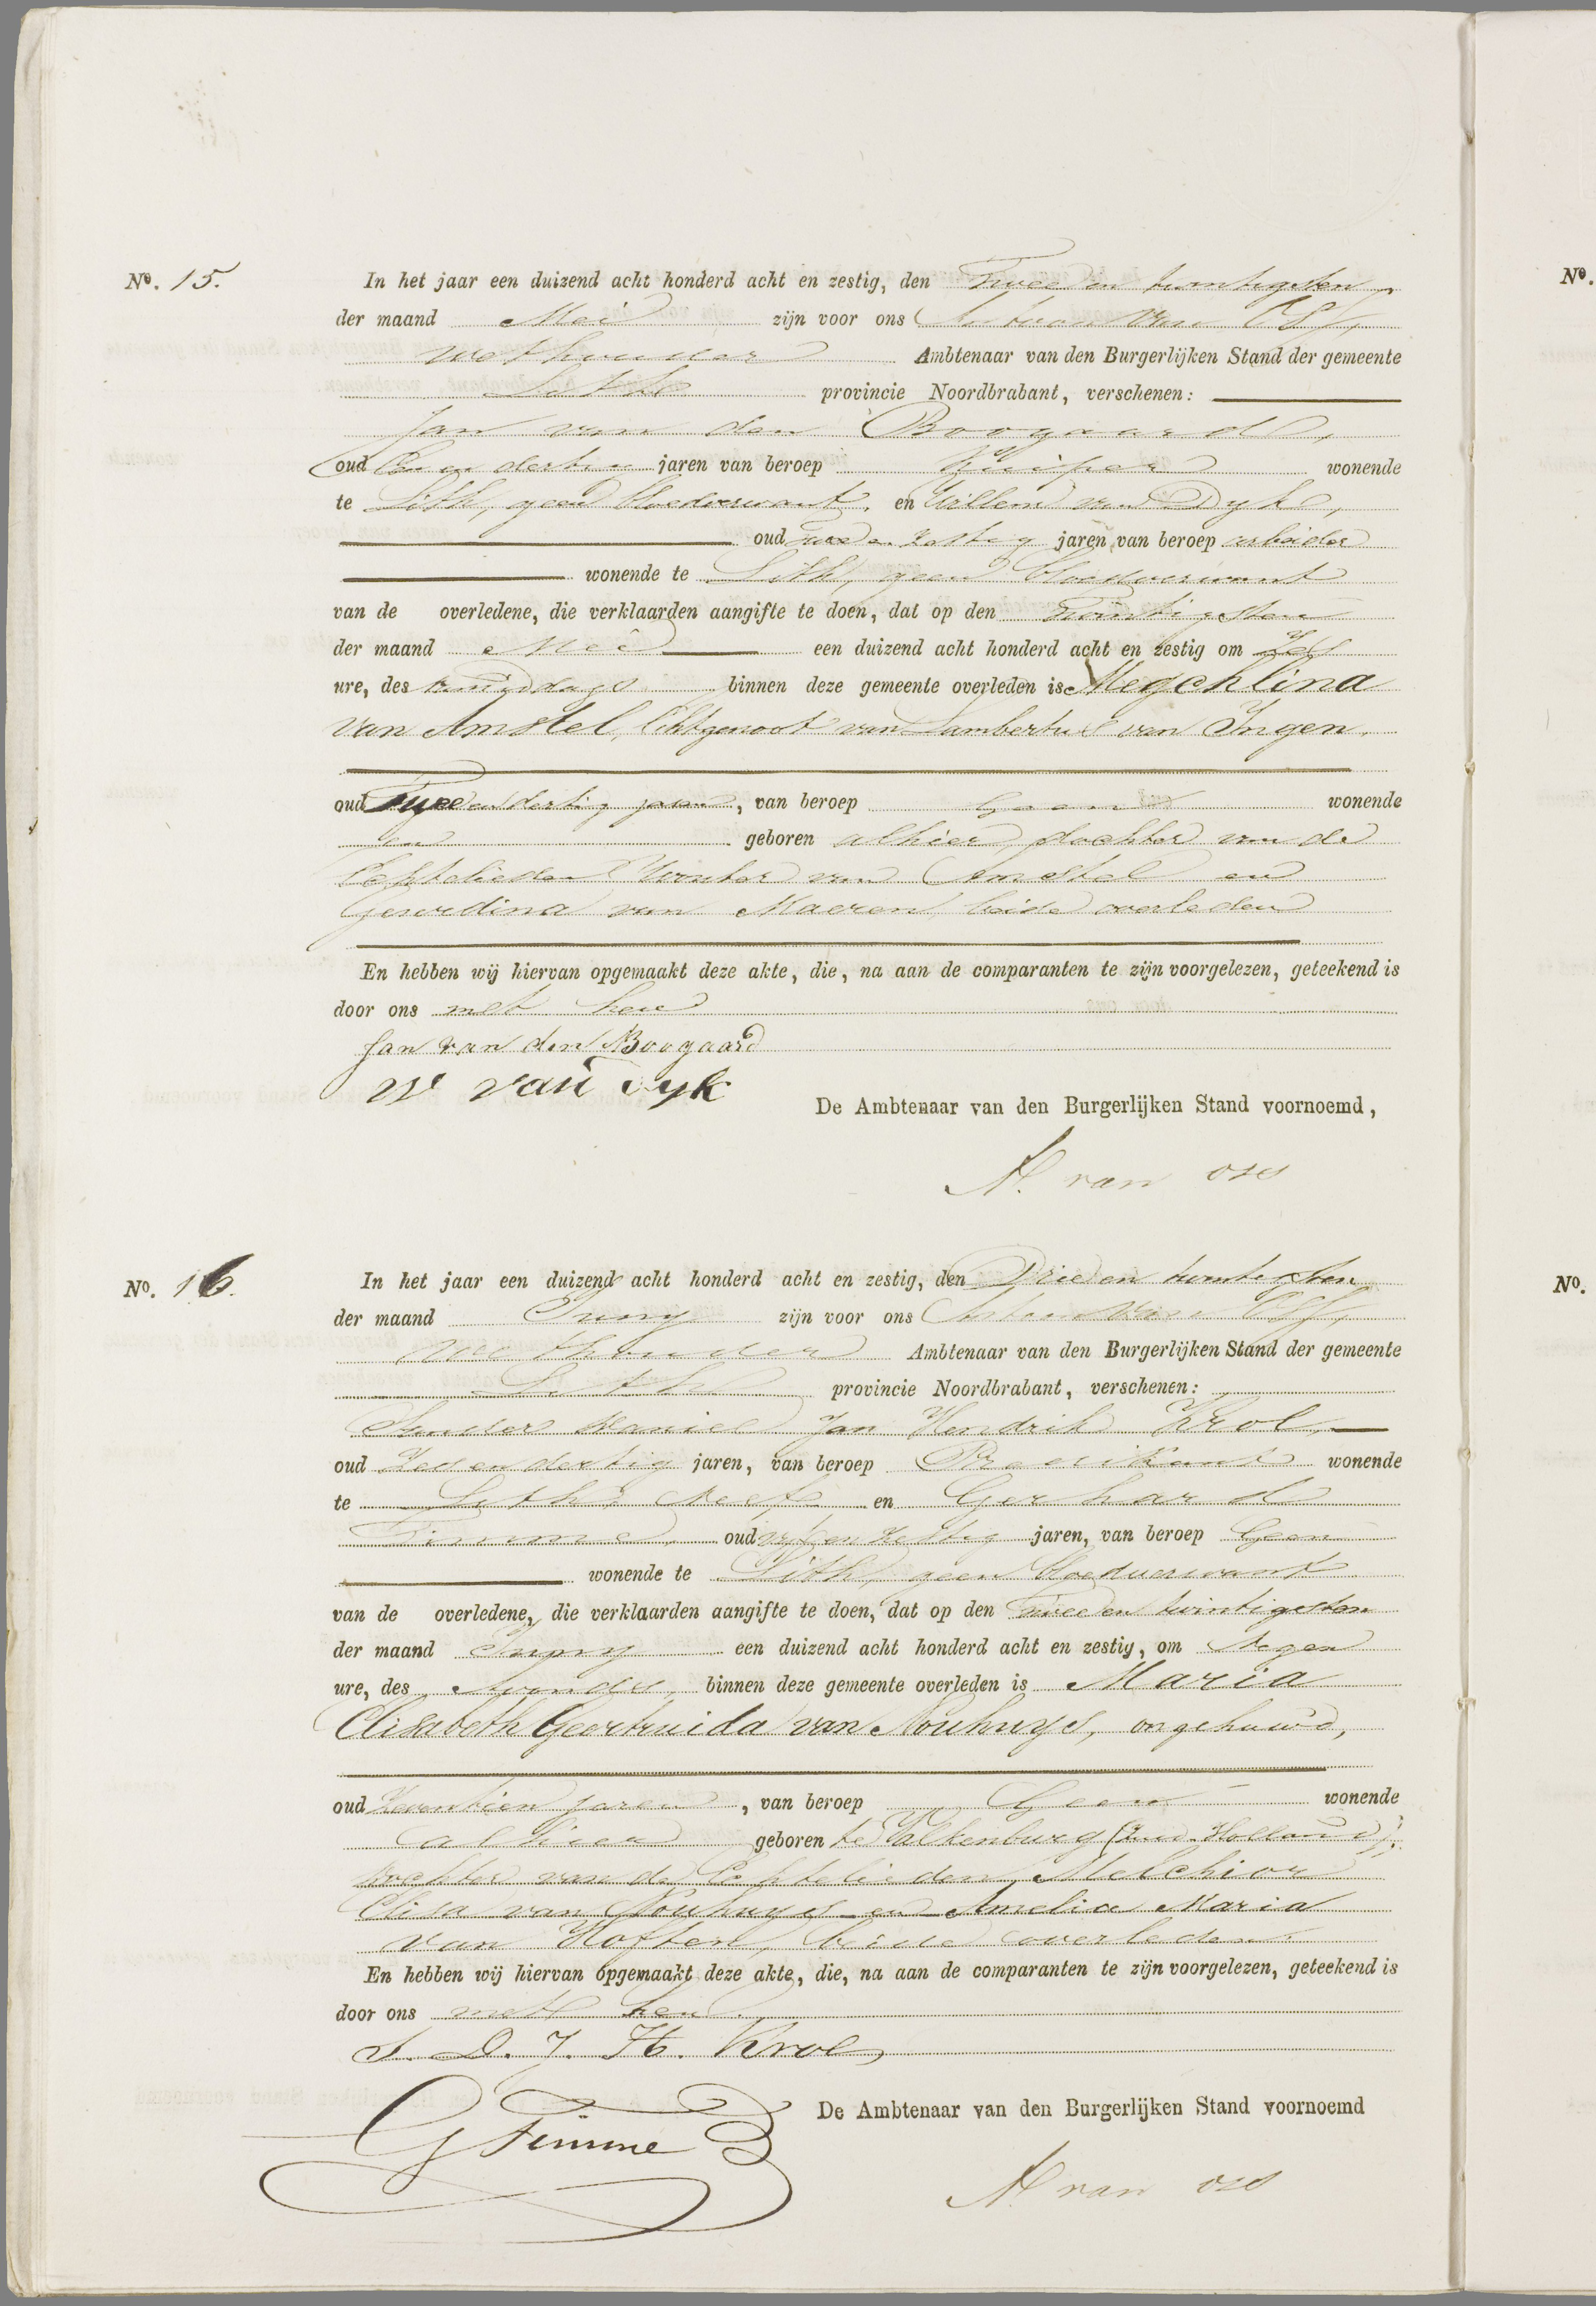 No. 15.
In het jaar een duizend acht honderd acht en zestig, den Twee en twintigsten
der maand Mei zijn voor ons Antoon van Oss,
wethouder Ambtenaar van den Burgerlijken Stand der gemeente
Lith provincie Noordbrabant, verschenen:
Jan van den Boogaard,
oud jaren van beroep Kuiper wonende
te Lith, geen bloedverwant, en Willem van Dyk,
oud twee en zestig jaren van beroep arbeider
wonende te Lith, geen bloedverwant
van de overledene, die verklaarden aangifte te doen, dat op den twintigsten
der maand Mei een duizend acht honderd acht en zestig om
ure, des binnen deze gemeente overleden is Megchlina
van Amstel, Echtgenoot van Lambertus van Ingen,
oud Twee en dertig jaren, van beroep Geen wonende
en geboren alhier, dochter van de
Echtelieden Wouter van Amstel en
Gerardina van Maeren, beide overleden
En hebben wij hiervan opgemaakt deze akte, die, na aan de comparanten te zijn voorgelezen, geteekend is
door ons met hen
Jan van den Boogaard
W van Dyk
De Ambtenaar van den Burgerlijken Stand voornoemd,
A. van oss
No. 16.
In het jaar een duizend acht honderd acht en zestig, den Drie en twintigsten
der maand Juny zijn voor ons Antoon van Oss,
wethouder Ambtenaar van den Burgerlijken Stand der gemeente
Lith provincie Noordbrabant, verschenen:
Sander Daniel Jan Hendrik Krol,
oud Zes en dertig jaren, van beroep Predikant wonende
te Lith, Neef en Gerhard
Timme, oud vyf en zestig jaren, van beroep Geen
wonende te Lith, geen bloedverwant
van de overledene, die verklaarden aangifte te doen, dat op den Twee en twintigsten
der maand Juny een duizend acht honderd acht en zestig, om negen
ure, des avonds, binnen deze gemeente overleden is Maria
Elisabeth Geertruida van Nouhuys, ongehuwd,
oud Zeventien jaren, van beroep Geen wonende
alhier geboren te Valkenburg (Zuid-Holland),
dochter van de Echtelieden Melchior
Elisa van Nouhuys en Amelia Maria
van Hoften, beide overleden.
En hebben wij hiervan opgemaakt deze akte, die, na aan de comparanten te zijn voorgelezen, geteekend is
door ons met hen.
S. D. J. H. Krol
G Timme
De Ambtenaar van den Burgerlijken Stand voornoemd
A. van oss
No.
No.